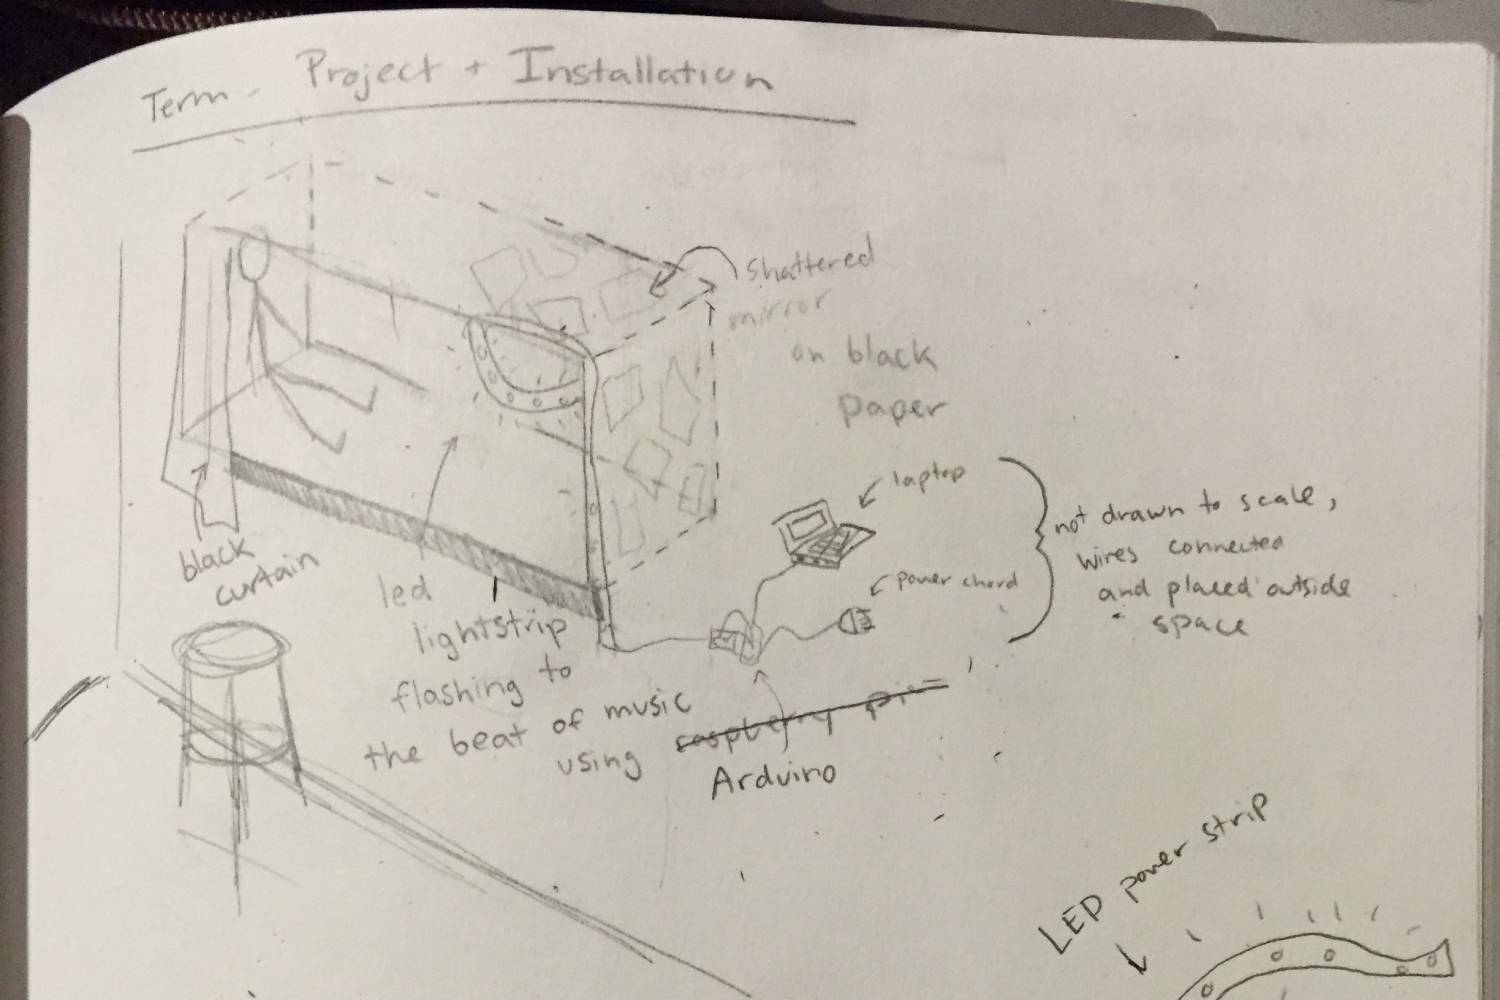 Term - Project + Installation
shattered
mirror
on black
paper
laptop
power chord
not drawn to scale,
wires connected
and placed outside
space
black
curtain
led
lightstrip
flashing to
the beat of music
using raspberry pi
Arduino
LED power strip